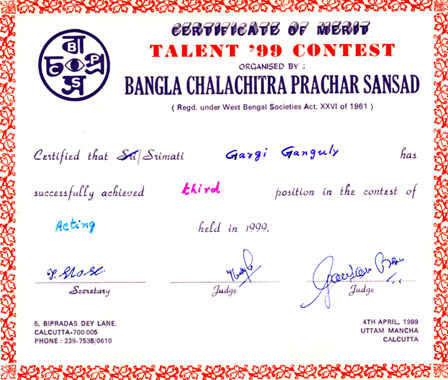 CERTIFICATE OF MERIT
TALENT '99 CONTEST
ORGANISED BY :
BANGLA CHALACHITRA PRACHAR SANSAD
( Regd. under West Bengal Societies Act. XXVI of 1961 )
Certified that Sri/Srimati Gargi Ganguly has
successfully achieved third position in the contest of
Acting held in 1999.
Secretary Judge Judge
5, BIPRADAS DEY LANE,
CALCUTTA-700 005
PHONE : 239-7535/0610
4TH APRIL, 1999
UTTAM MANCHA
CALCUTTA